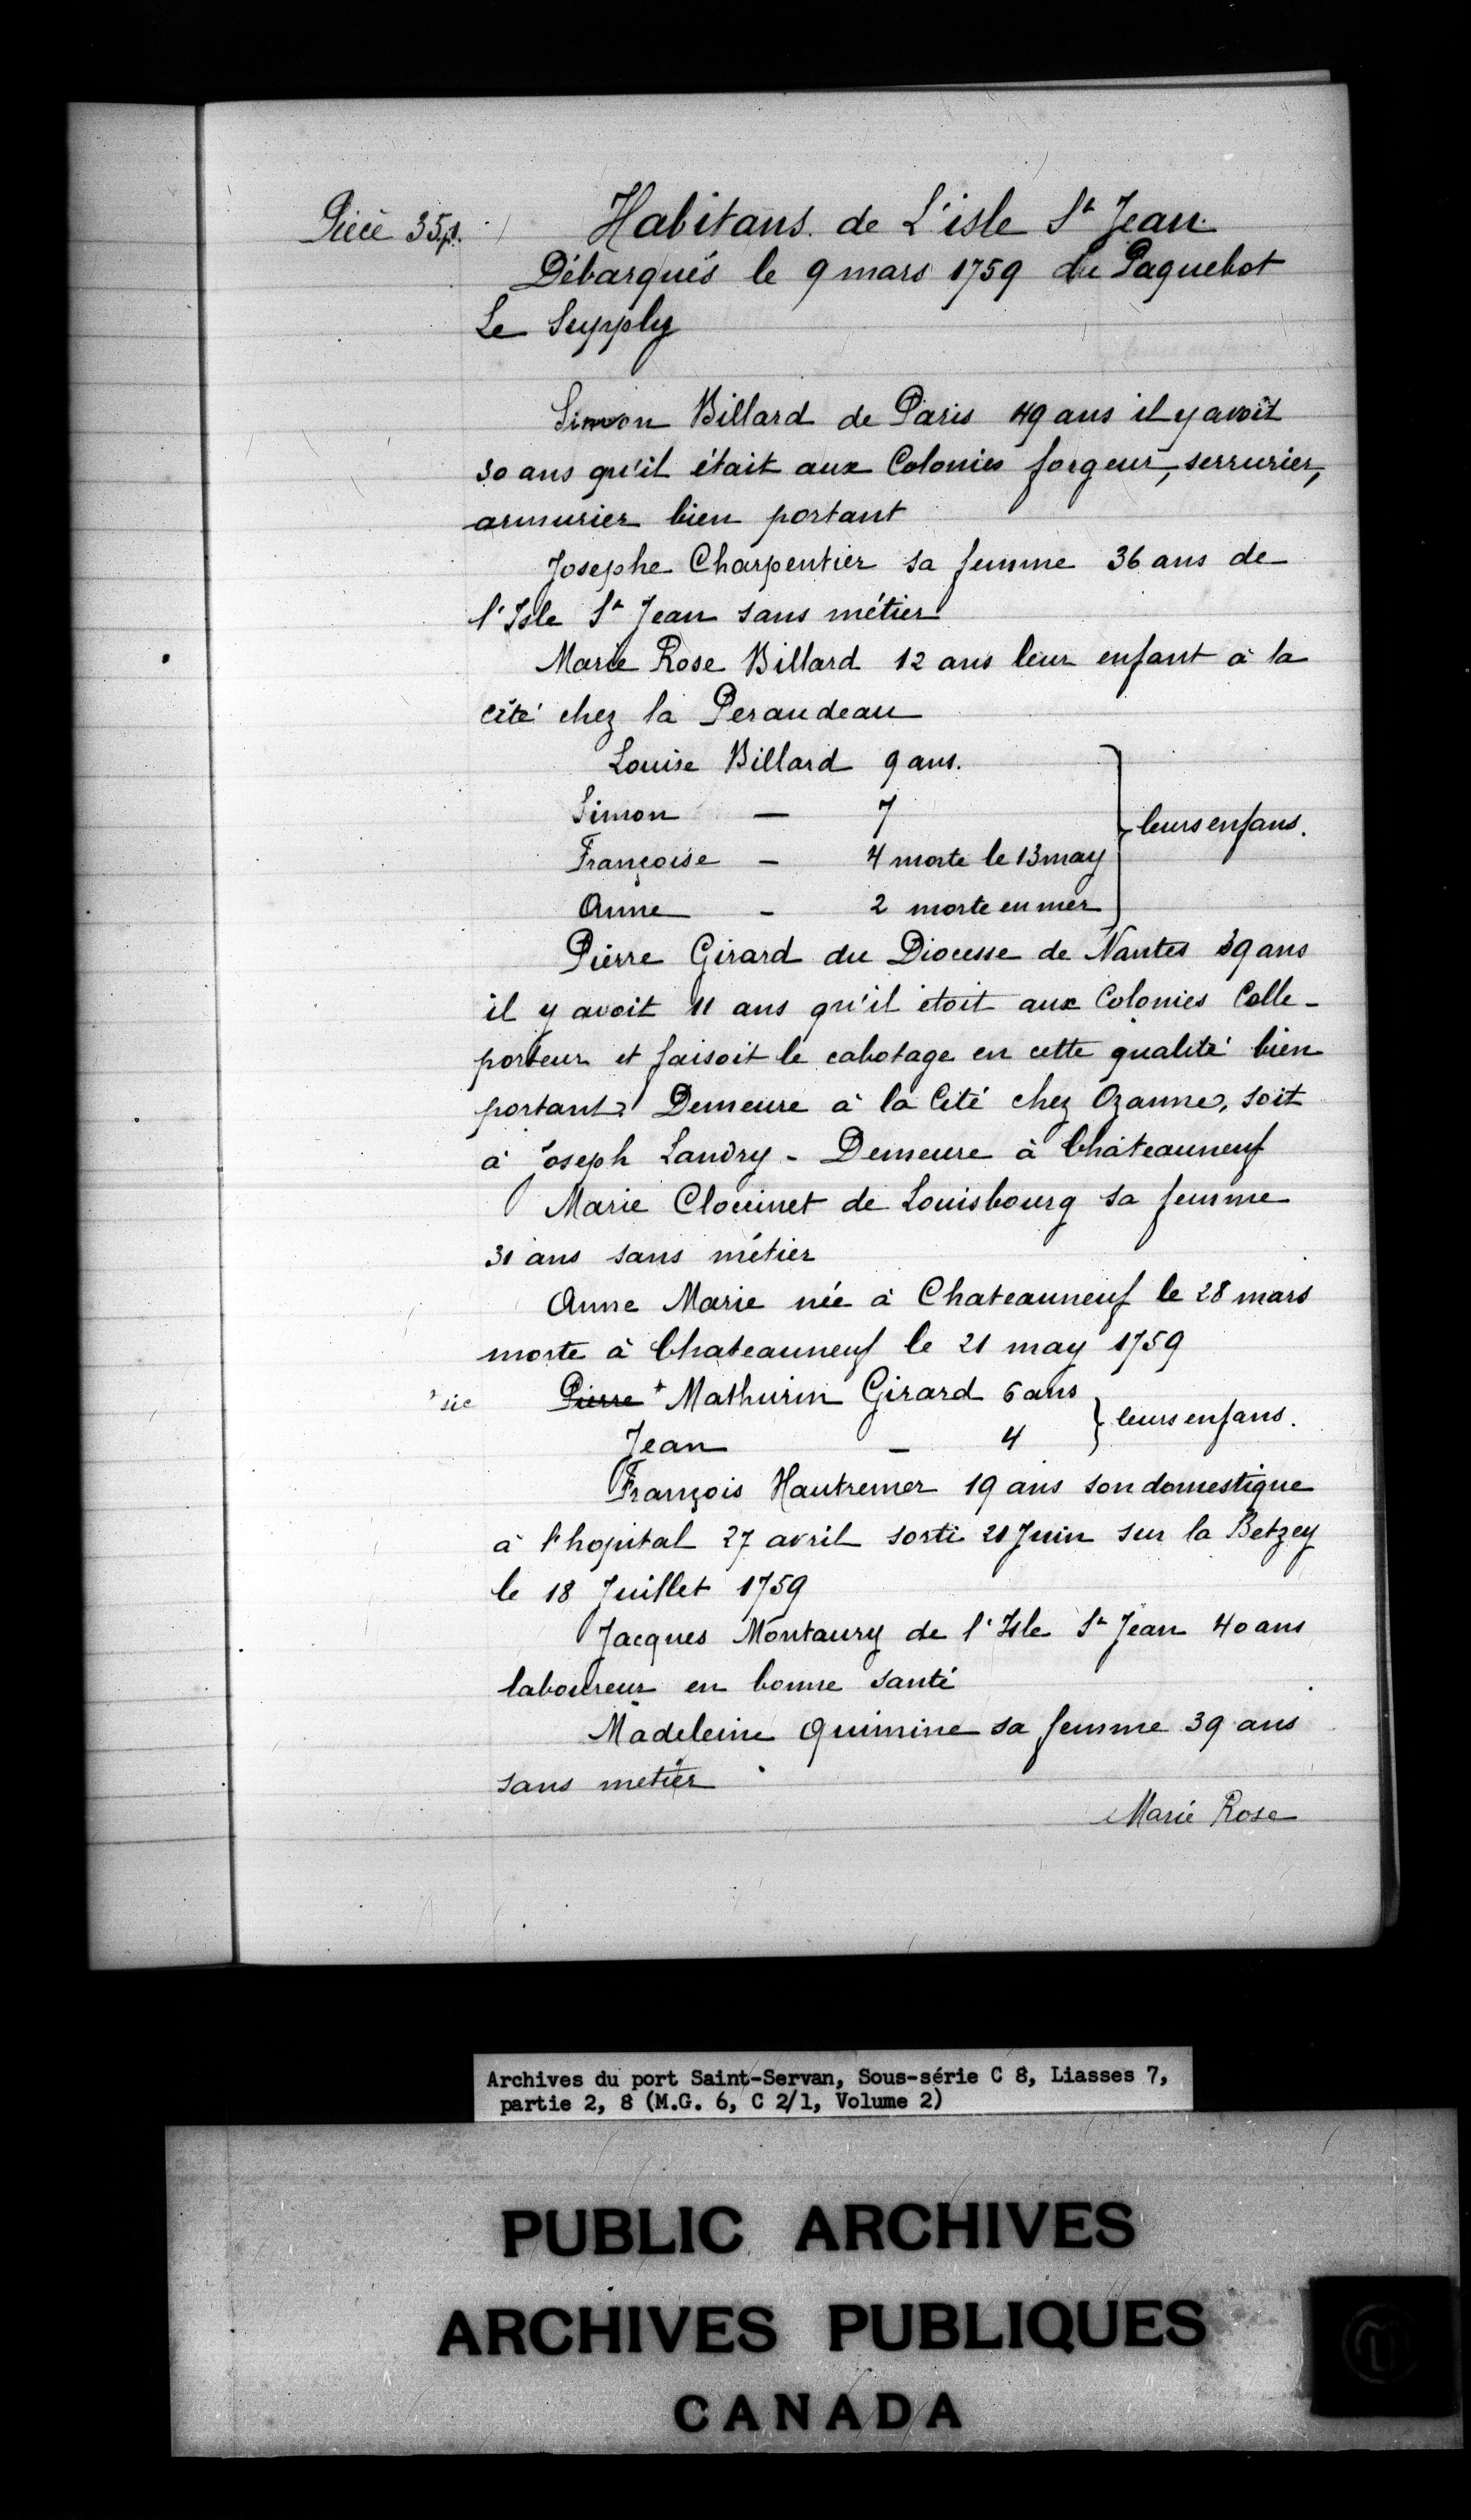 Pièce 35
Habitans de L'isle St Jean
Débarqués le 9 mars 1759 du Paquebot
Le Supply
Simon Billard de Paris 49 ans il y avoit
30 ans qu'il était aux Colonies forgeur, serrurier,
armurier bien portant
Josephe Charpentier sa femme 36 ans de
l'Isle St Jean sans métier
Marie Rose Billard 12 ans leur enfant à la
cité chez la Peraudeau
Louise Billard 9 ans.
Simon — 7
leurs enfans.
Françoise - 4 morte le 13 may
Anne - 2 morte en mer
Pierre Girard du Diocesse de Nantes 39 ans
il y avoit 11 ans qu'il etoit aux Colonies Colle-
porteur et faisoit le cabotage en cette qualité bien
portant. Demeure à la Cité chez Ozanne, soit
à Joseph Landry - Demeure à Châteauneuf
Marie Clouinet de Louisbourg sa femme
31 ans sans métier
Anne Marie née à Chateauneuf le 28 mars
morte à Chateauneuf le 21 may 1759
sic Pierre + Mathurin Girard 6 ans
leurs enfans.
Jean - 4
François Hautremer 19 ans son domestique
à l'hopital 27 avril sorti 21 Juin sur la Betzey
le 18 Juillet 1759
Jacques Montaury de l'Isle St Jean 40 ans
laboureur en bonne santé
Madeleine Quimine sa femme 39 ans
sans metier
Marie Rose
Archives du port Saint-Servan, Sous-série C 8, Liasses 7,
partie 2, 8 (M.G. 6, C 2/1, Volume 2)
PUBLIC ARCHIVES
ARCHIVES PUBLIQUES
CANADA